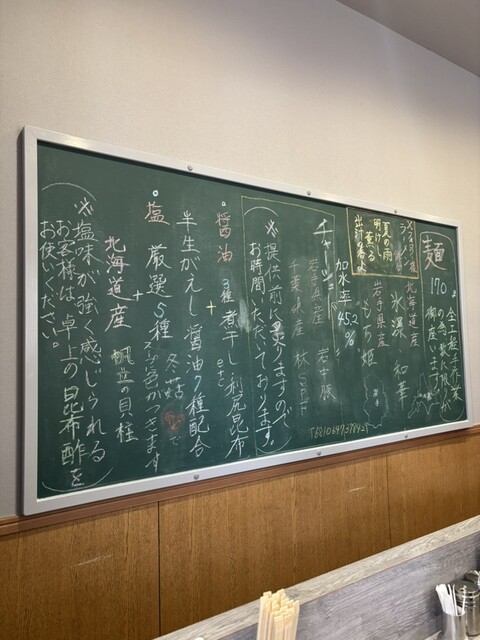 麺
170g
全工程手作業
の為、数に限りが
御座います
北海道産
氷濠、和華
岩手県産
もち姫
加水率
45.2
%
夏の雨
明けし
薫る
チャーシュー
岩手県産 岩中豚
千葉県産 林SPF
Tel 0
※提供前に炙りますので
お時間いただいております
醤油
3種煮干し 利尻昆布
etc
+
半生がえし 醤油7種配合
冬菇で
塩 厳選5種 スープに色がつきます
+
北海道産 帆立の貝柱
※塩味が強く感じられる
お客様は、卓上の昆布酢を
お使いください。